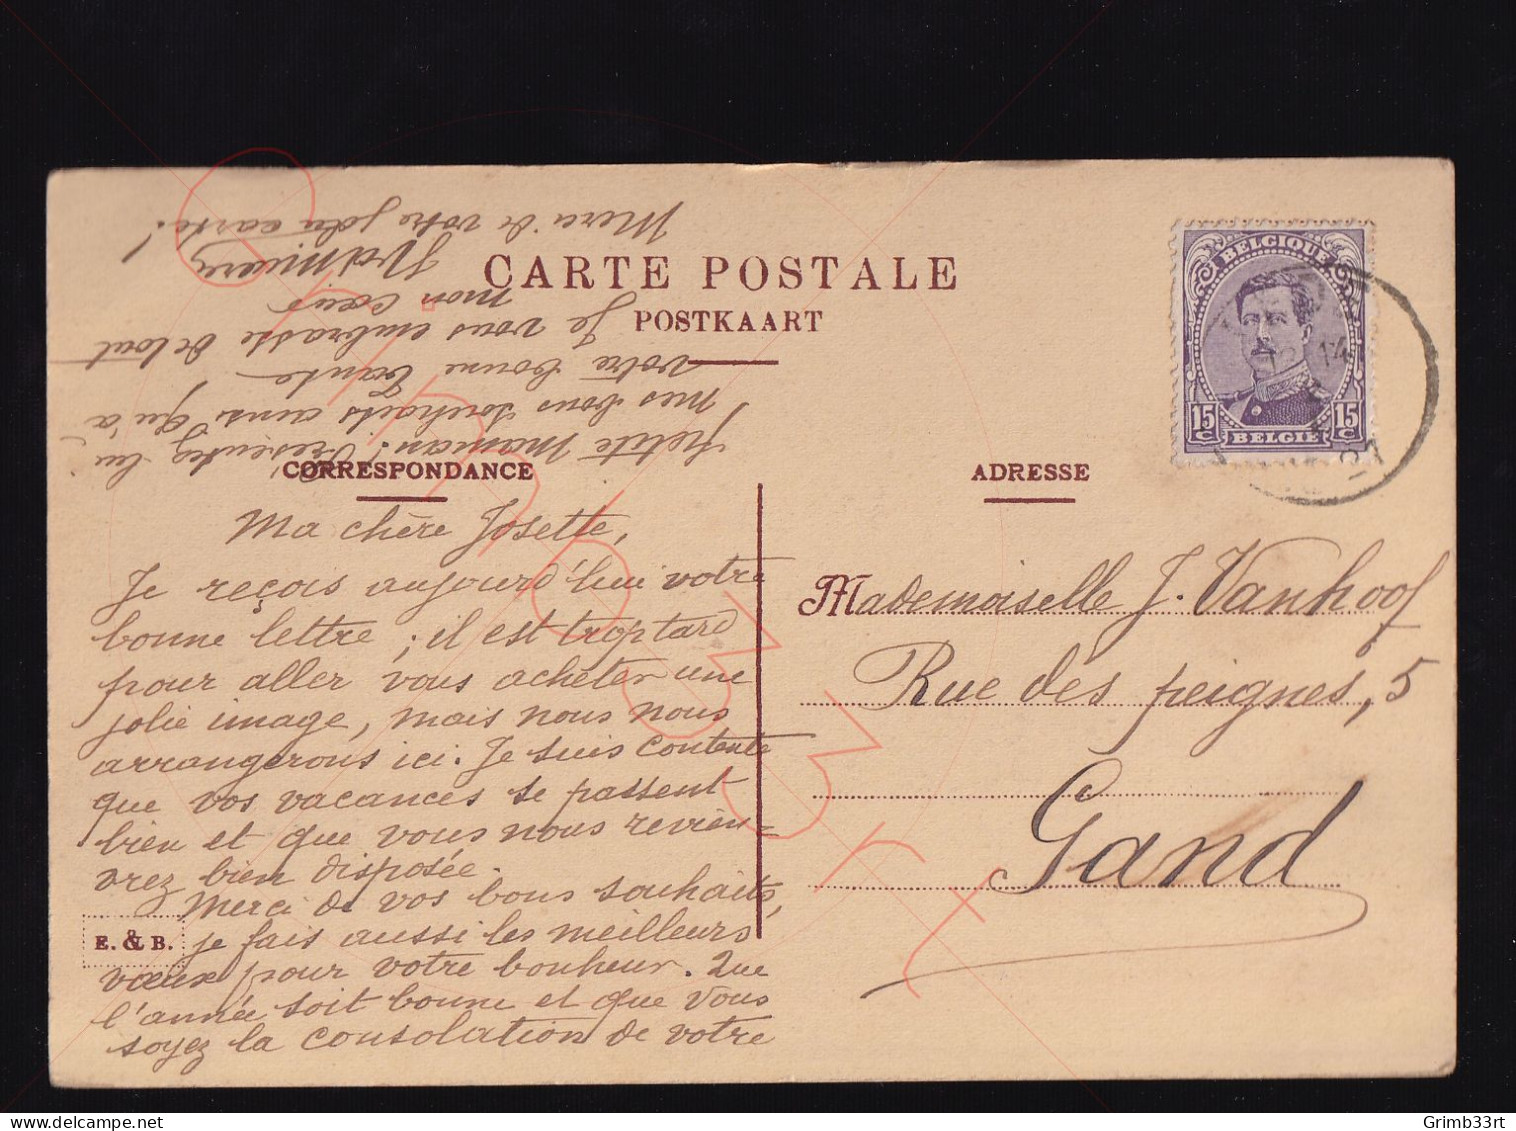 CARTE POSTALE
POSTKAART
CORRESPONDANCE
ADRESSE
Ma chère Josette,
Je reçois aujourd'hui votre
bonne lettre; il est trop tard
pour aller vous acheter une
jolie image, mais nous nous
arrangerons ici. Je suis contente
que vos vacances se passent
bien et que vous nous revien-
drez bien disposée.
Merci de vos bons souhaits,
je fais aussi les meilleurs
vœux pour votre bonheur. Que
l'année soit bonne et que vous
soyez la consolation de votre
petite maman! Présentez lui
mes bons souhaits ainsi qu'à
votre bonne Tante
Je vous embrasse de tout
mon cœur
Merci de votre jolie carte!
E. & B.
Mademoiselle J. Vanhoof
Rue des peignes, 5
Gand
BELGIQUE
15 C
15 C
BELGIE
14
Grimb33rt
Grimb33rt